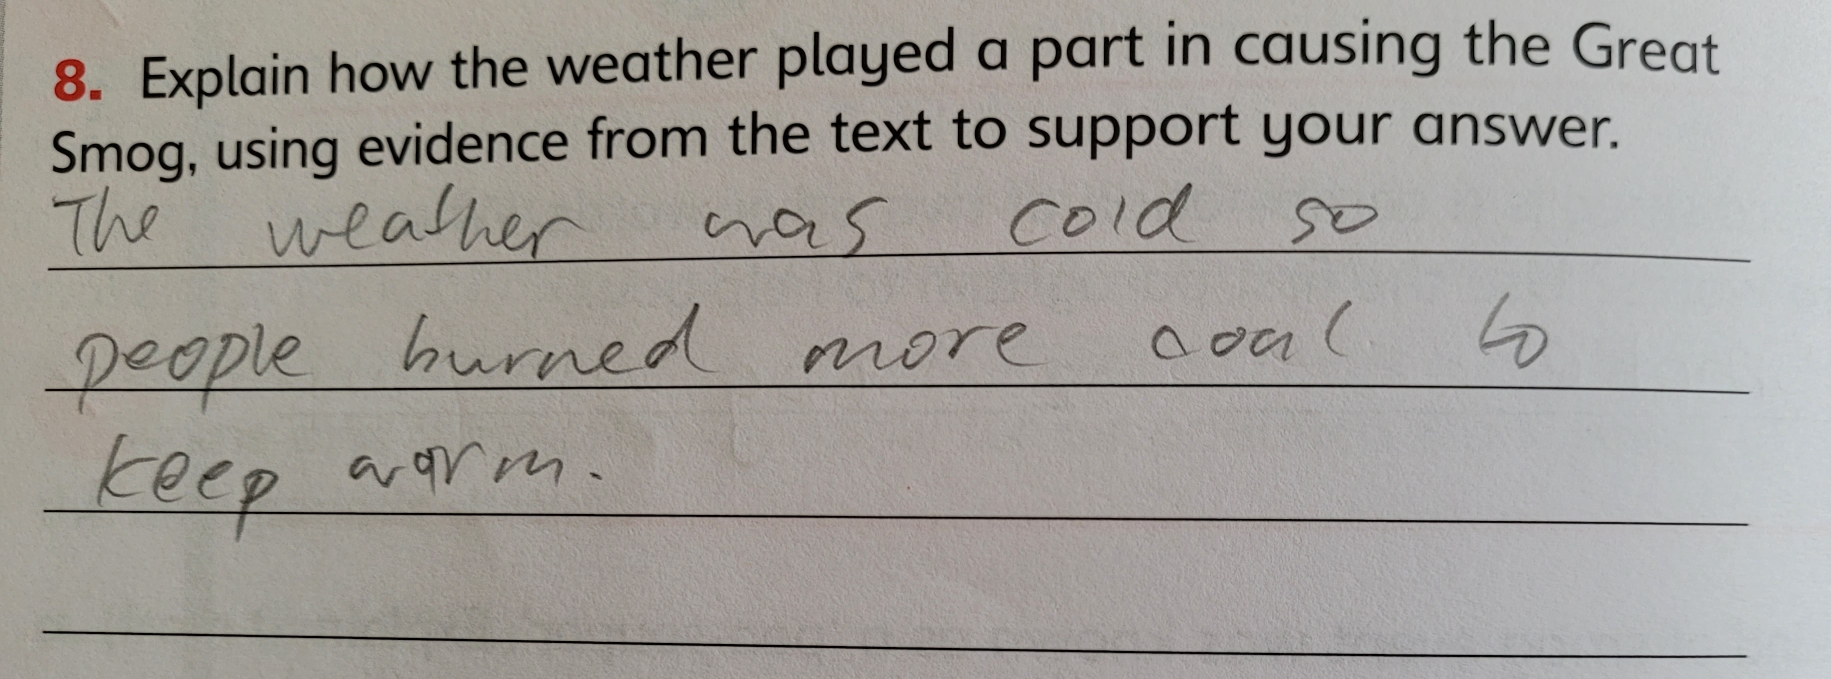 8. Explain how the weather played a part in causing the Great
Smog, using evidence from the text to support your answer.
The weather was cold so
people burned more coal to
keep warm.